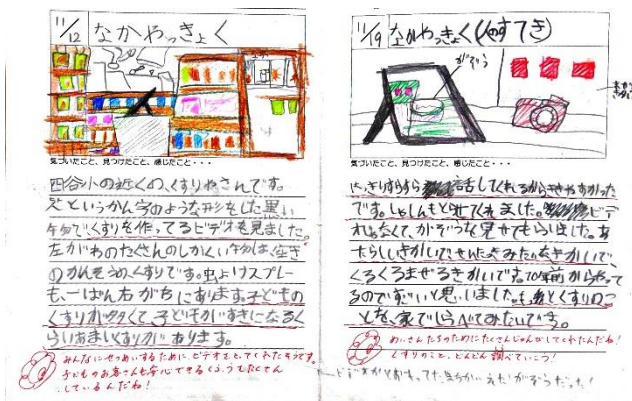 11/12 なかやっきょく
気づいたこと、見つけたこと、感じたこと・・・
四谷小の近くの、くすりやさんです。
今のような形をした黒い
でくすりを作ってるビデオを見ました。
左がわのたくさんのしかくい
のかんそうの、くすりです。虫よけスプレー
も、一ばん右がわにあります。子どもの
くすりが多くて、子どもがすきになるく
らいあまいくすりがあります。
みんなにせつめいするために、ビデオをとってくれたそうです。
子どものお客さんも安心できるくふうもたくさん
しているんだね!
11/19 なかやっきょく(すてき)
がぞう
気づいたこと、見つけたこと、感じたこと・・・
はっきりすらすら話してくれるからききやすかった
です。しゃしんも見せてくれました。ビデ
じゃなくて、がぞうを見せてもらいました。あ
たらしいきかいで
くるくるまぜるきかいです。70年前からやって
るのですごいと思いました。もっとくすりのこ
とを、家でしらべてみたいです。
めいさんたちのためにたくさんじゅんびしてくれたんだね!
くすりのこと、どんどん調べていこう!
ビデオかとおもってた
がぞうだった!